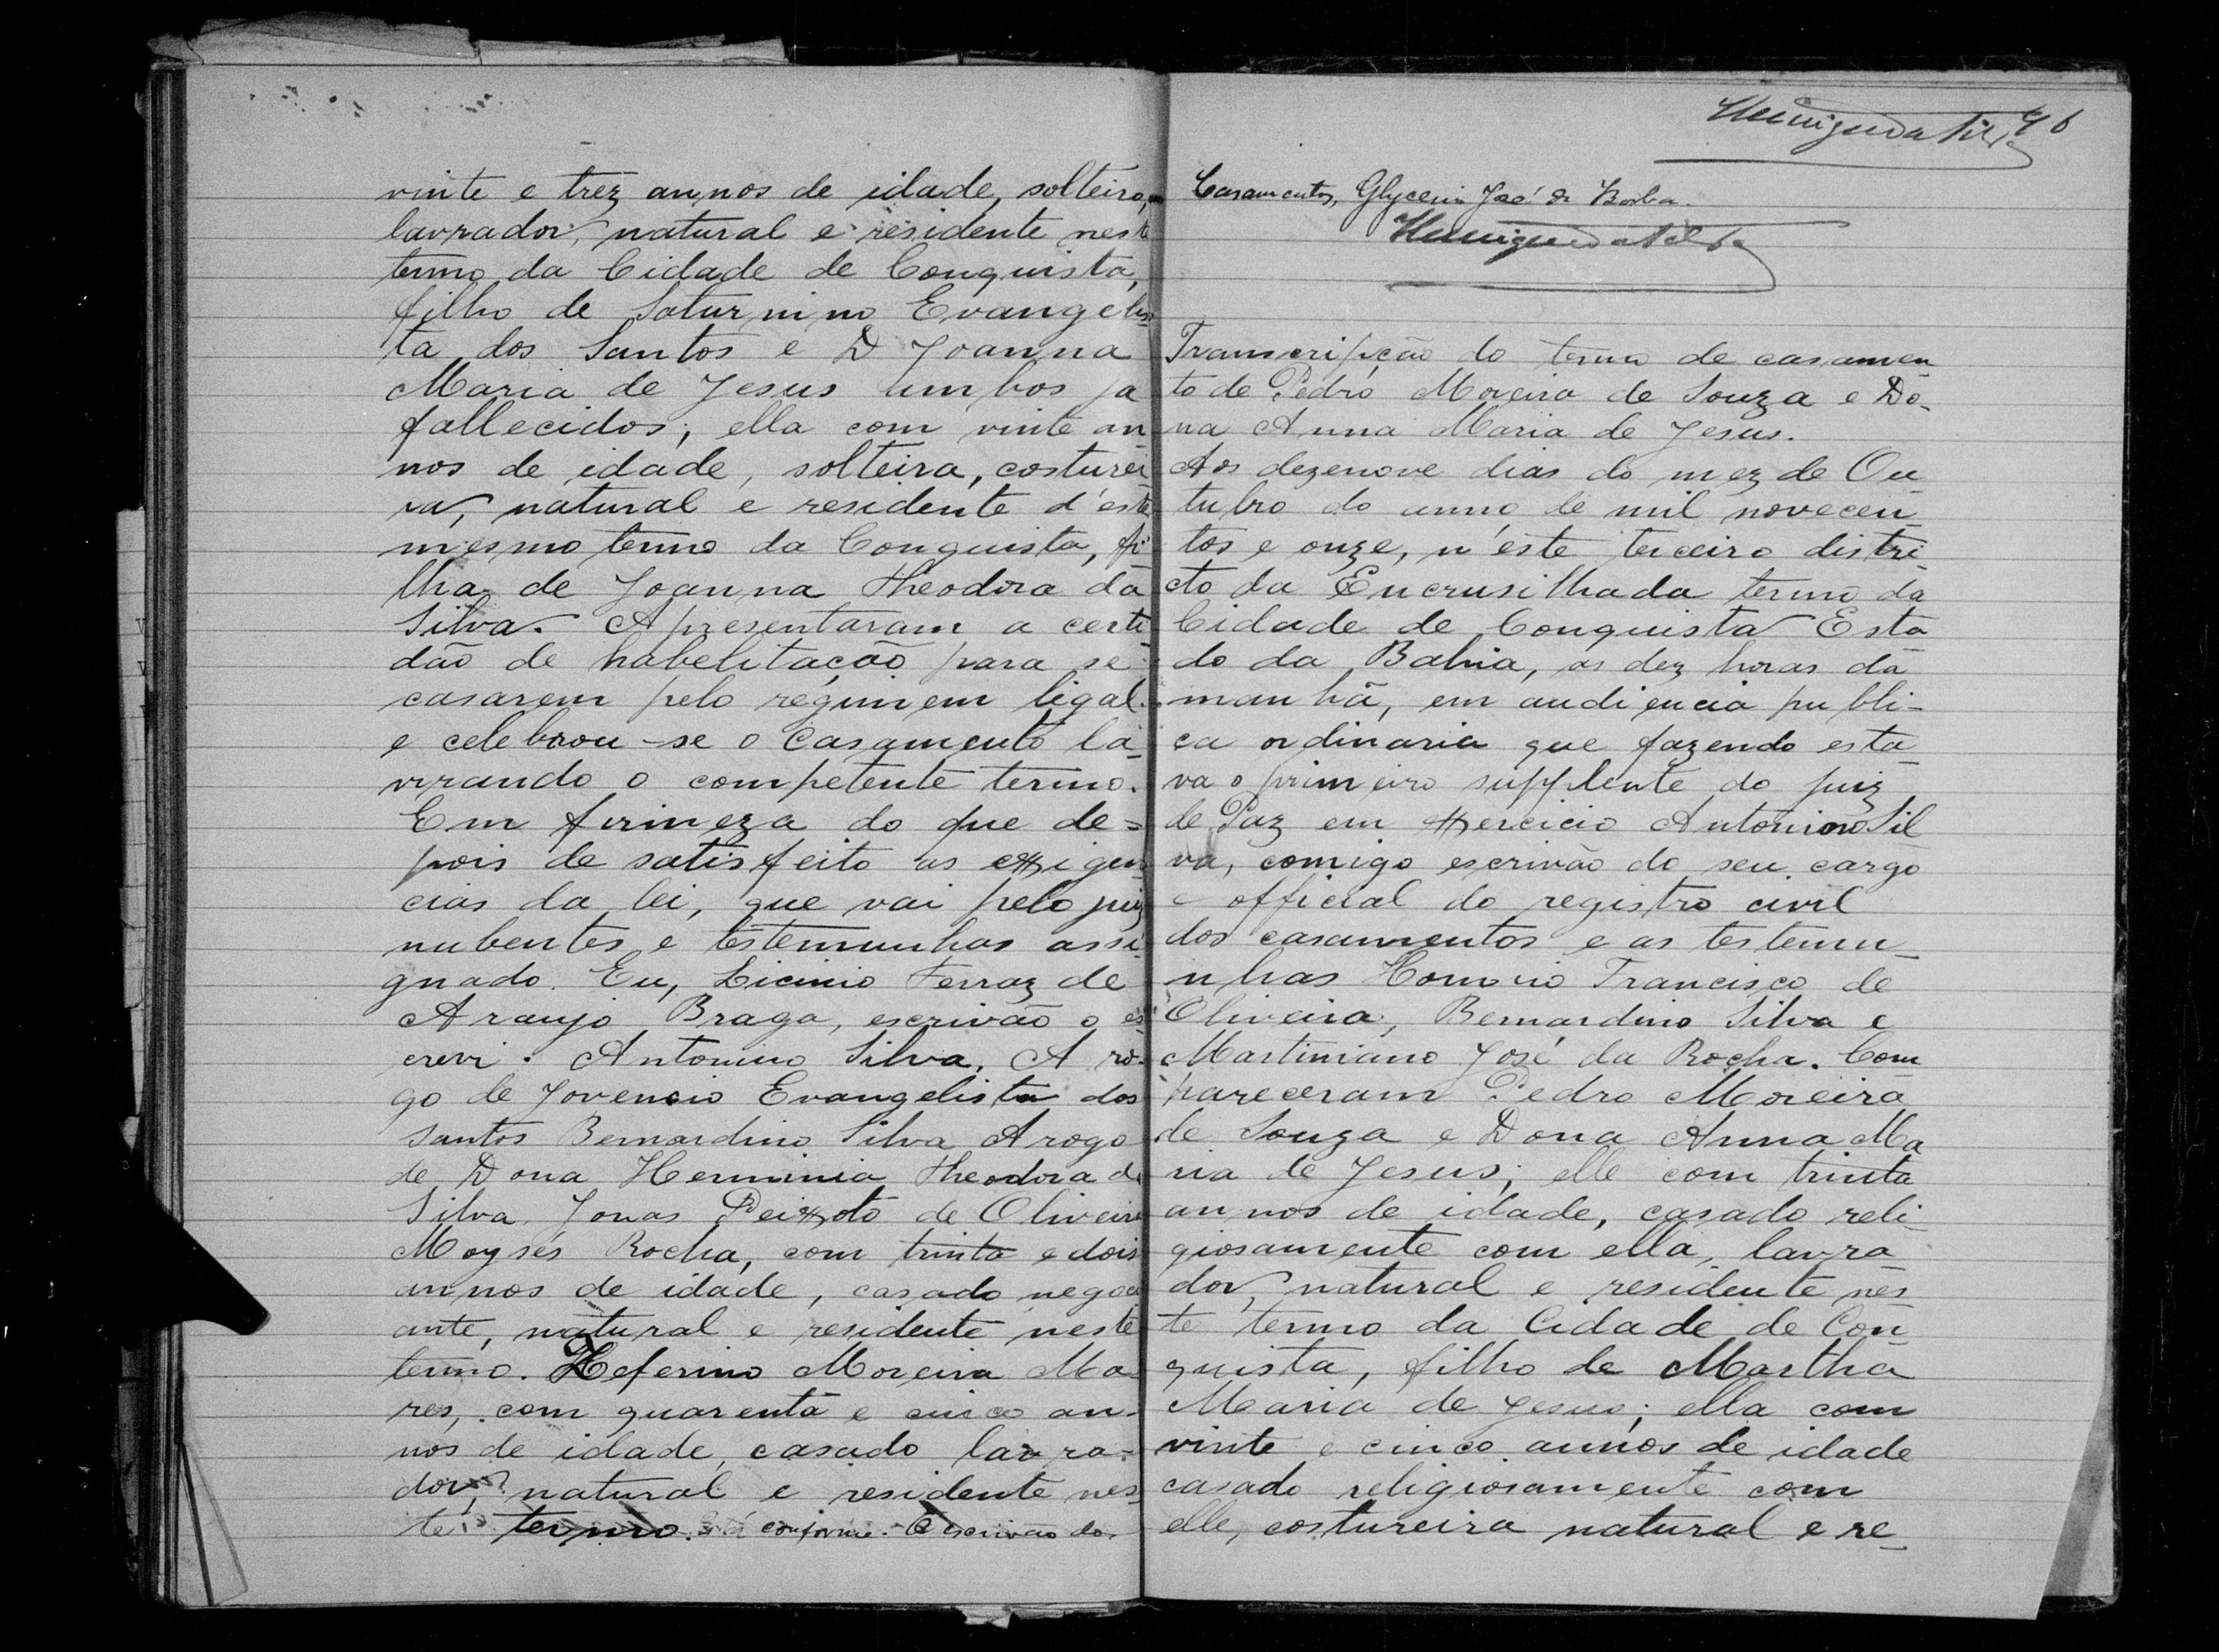 vinte e trez annos de idade, solteiro,
lavrador, natural e residente neste
termo da Cidade de Conquista,
filho de Saturnino Evangelis
ta dos Santos e D Joanna
Maria de Jesus ambos ja
fallecidos; ella com vinte an
nos de idade, solteira, costurei
ra, natural e residente d'este
mesmo termo da Conquista, fi
lha de Joanna Theodora da
Silva. Apresentaram a certi
dão de habelitação para se
casarem pelo regimem legal
e celebrou-se o Casamento la
vrando o competente termo.
Em firmeza do que de=
pois de satisfeito as exigen
cias da lei, que vai pelo juiz
nubentes e testemunhas assi
gnado. Eu, Licinio Ferraz de
Araujo Braga, escrivão o es
crevi. Antonino Silva. A ro-
go de Jovencio Evangelista dos
Santos Bernardino Silva A rogo
de Dona Herminia Theodora da
Silva. Jonas Peixoto de Oliveira
Moysés Rocha, com trinta e dois
annos de idade, casado negoci
ante, natural e residente neste
termo. Zeferino Moreira Ma
res, com quarenta e cinco an-
nos de idade, casado lavra-
dor, natural e residente nes
te termo. Está conforme. O escrivão dos
96
Casamentos, Glycerio José de Borba.
Transcripção do termo de casamen
to de Pedro Moreira de Souza e Do-
na Anna Maria de Jesus.
Aos dezenove dias do mez de Ou
tubro do anno de mil novecen
tos e onze, n'este terceiro distri
cto da Encrusilhada termo da
Cidade de Conquista Esta
do da Bahia, as dez horas da
manhã, em audiencia publi-
ca ordinaria que fazendo esta
va o primeiro supplente do juiz
de Paz em exercicio Antonino Sil
va, comigo escrivão do seu cargo
e official do registro civil
dos casamentos e as testemu
nhas Homerio Francisco de
Oliveira, Bernardino Silva e
Martiniano José da Rocha. Com
pareceram Pedro Moreira
de Souza e Dona Anna Ma
ria de Jesus; elle com trinta
annos de idade, casado reli-
giosamente com ella, lavra
dor, natural e residente nes
te termo da Cidade de Con
quista, filho de Martha
Maria de Jesus; ella com
vinte e cinco annos de idade
casado religiosamente com
elle, costureira natural e re-